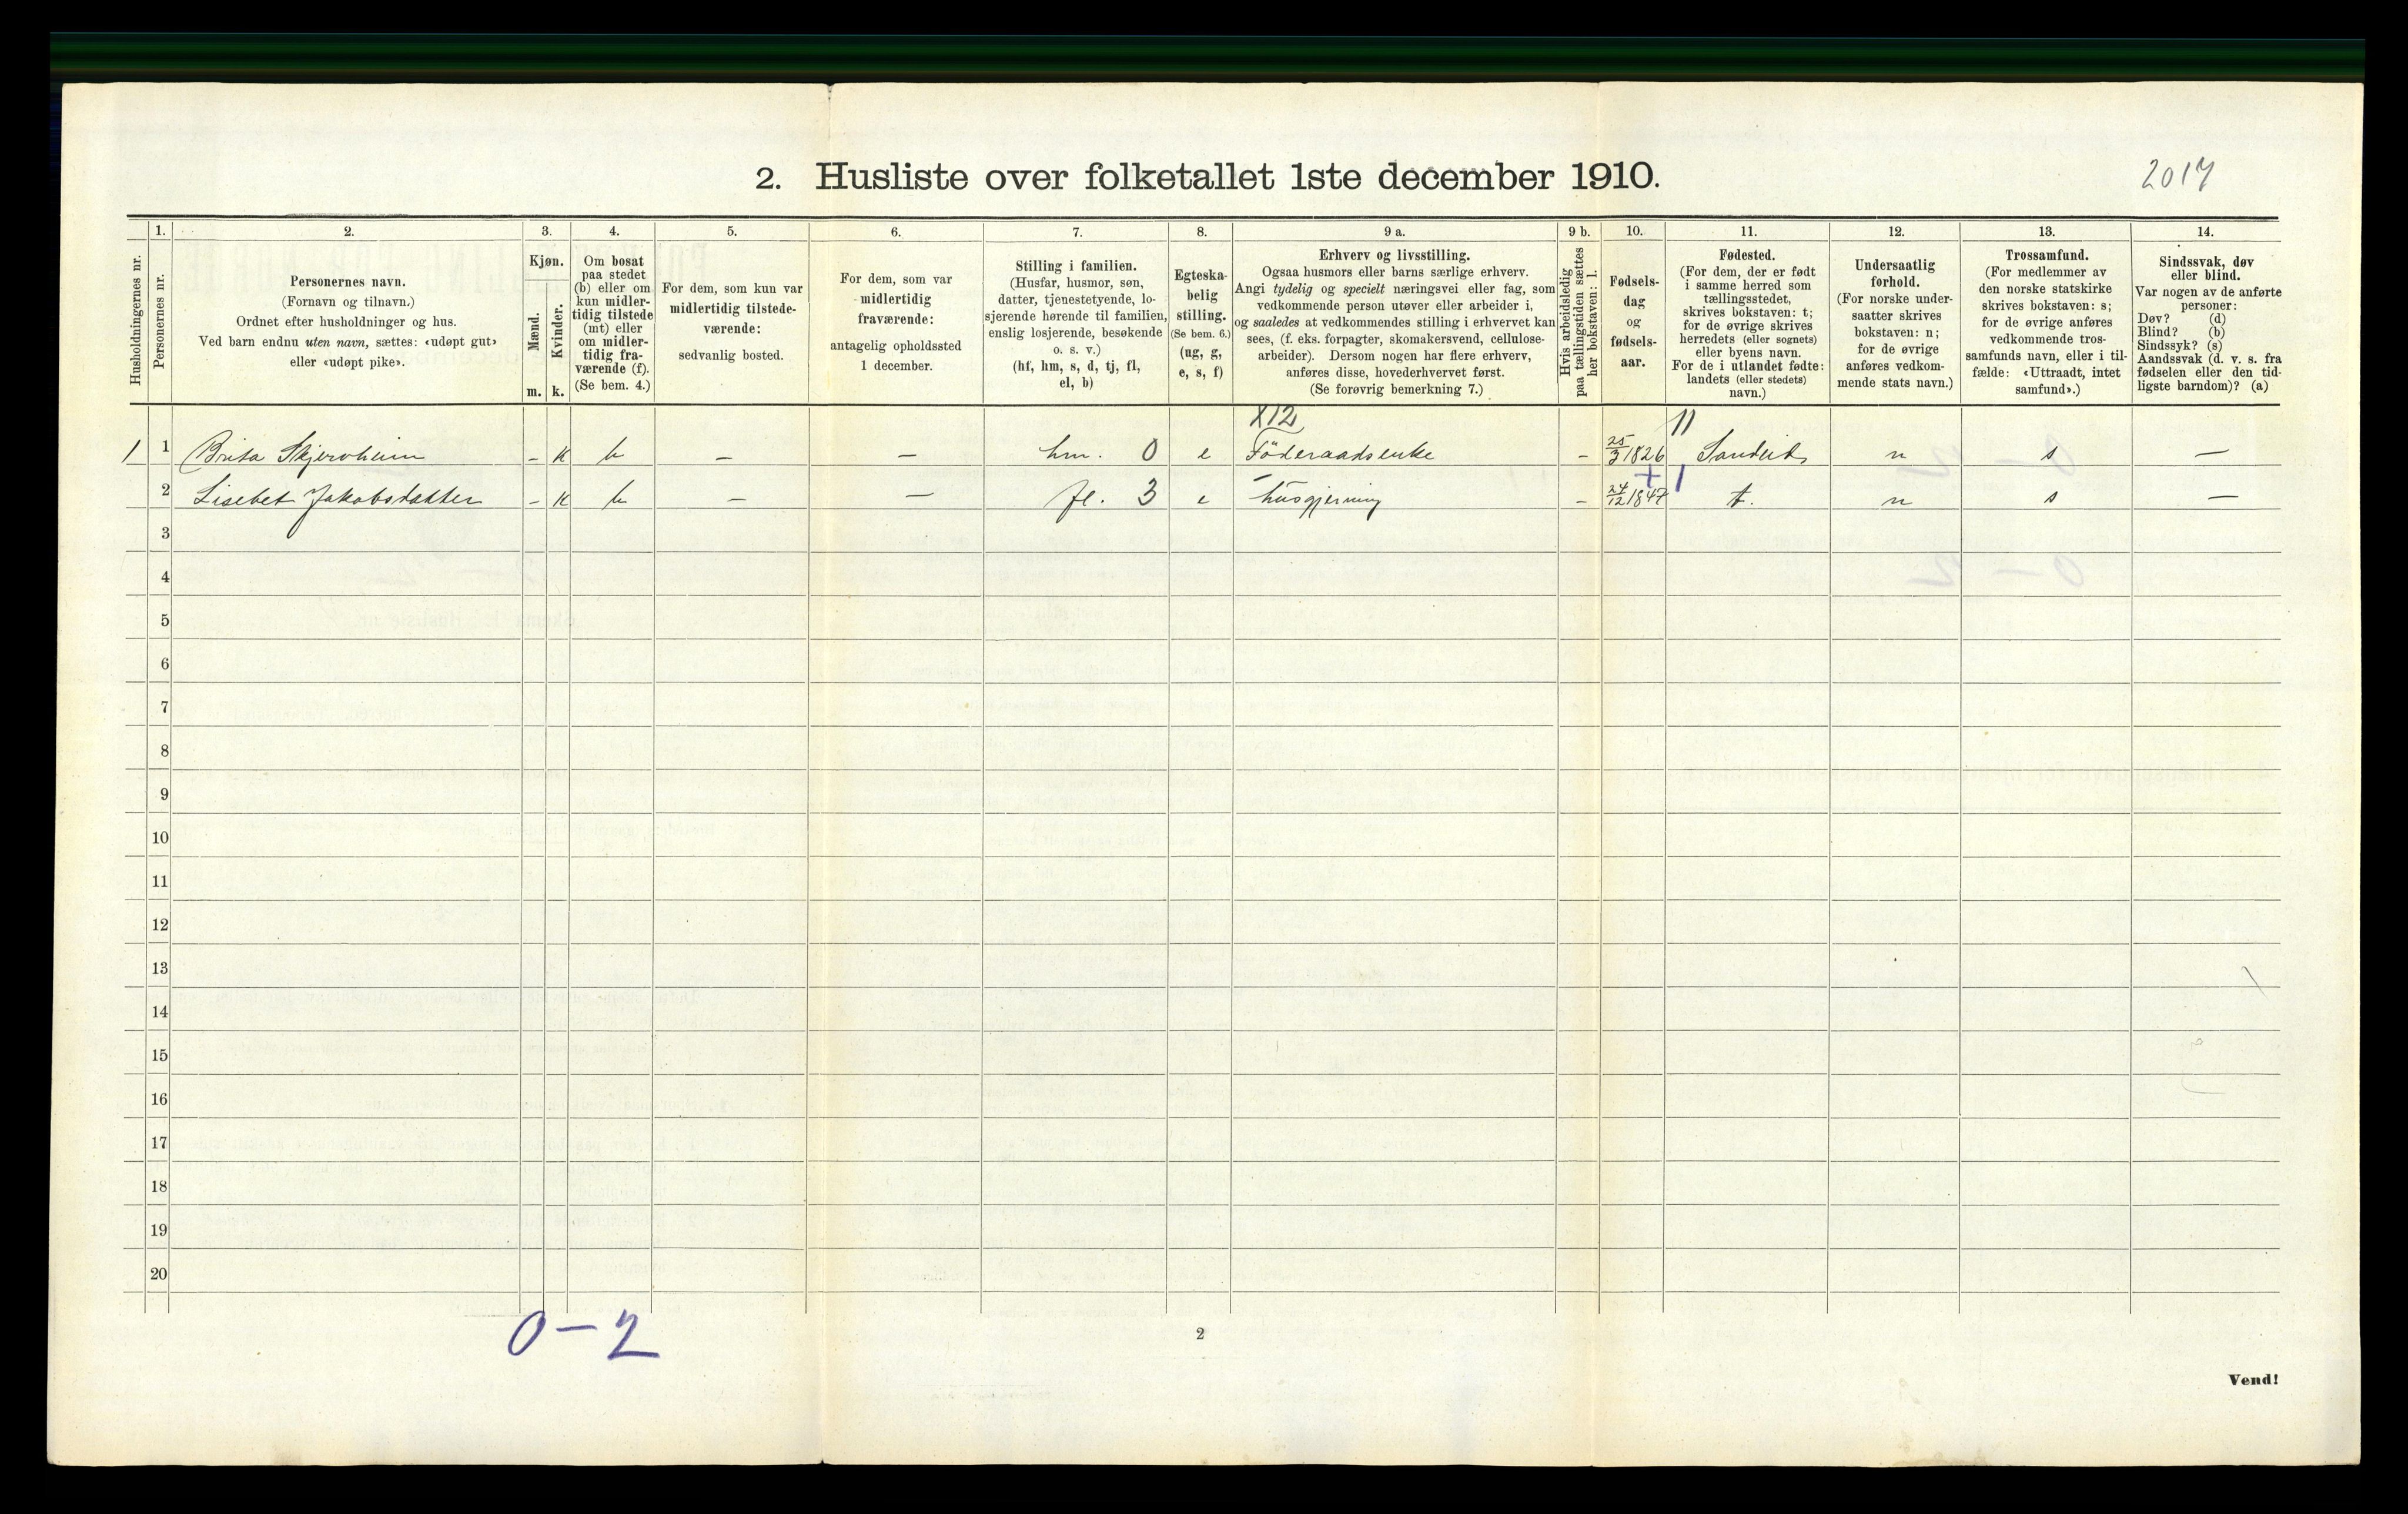 2. Husliste over folketallet 1ste december 1910.
2017
Husholdningernes nr.
1.
Personernes nr.
2.
Personernes navn.
(Fornavn og tilnavn.)
Ordnet efter husholdninger og hus.
Ved barn endnu uten navn, sættes: «udøpt gut»
eller «udøpt pike».
3.
Kjøn.
Mænd.
Kvinder.
m.
k.
4.
Om bosat
paa stedet
(b) eller om
kun midler-
tidig tilstede
(mt) eller
om midler-
tidig fra-
værende (f).
(Se bem. 4.)
5.
For dem, som kun var
midlertidig tilstede-
værende:
sedvanlig bosted.
6.
For dem, som var
midlertidig
fraværende:
antagelig opholdssted
1 december.
7.
Stilling i familien.
(Husfar, husmor, søn,
datter, tjenestetyende, lo-
sjerende hørende til familien,
enslig losjerende, besøkende
o. s. v.)
(hf, hm, s, d, tj, fl,
el, b)
8.
Egteska-
belig
stilling.
(Se bem. 6.)
(ug, g,
e, s, f)
9 a.
Erhverv og livsstilling.
Ogsaa husmors eller barns særlige erhverv.
Angi tydelig og specielt næringsvei eller fag, som
vedkommende person utøver eller arbeider i,
og saaledes at vedkommendes stilling i erhvervet kan
sees, (f. eks. forpagter, skomakersvend, cellulose-
arbeider). Dersom nogen har flere erhverv,
anføres disse, hovederhvervet først.
(Se forøvrig bemerkning 7.)
9 b.
Hvis arbeidsledig
paa tællingstiden sættes
her bokstaven: l.
10.
Fødsels-
dag
og
fødsels-
aar.
11.
Fødested.
(For dem, der er født
i samme herred som
tællingsstedet,
skrives bokstaven: t;
for de øvrige skrives
herredets (eller sognets)
eller byens navn.
For de i utlandet fødte:
landets (eller stedets)
navn.)
12.
Undersaatlig
forhold.
(For norske under-
saatter skrives
bokstaven: n;
for de øvrige
anføres vedkom-
mende stats navn.)
13.
Trossamfund.
(For medlemmer av
den norske statskirke
skrives bokstaven: s;
for de øvrige anføres
vedkommende tros-
samfunds navn, eller i til-
fælde: «Uttraadt, intet
samfund».)
14.
Sindssvak, døv
eller blind.
Var nogen av de anførte
personer:
Døv? (d)
Blind? (b)
Sindssyk? (s)
Aandssvak (d. v. s. fra
fødselen eller den tid-
ligste barndom)? (a)
X12 11
1 1 Brita Skjervheim - K b - - hm. 0 e Föderaadsenke - 25/3 1826 n s -
+ 1
2 Lisebet Jakobsdatter - K b - - fl. 3 e husgjerning - 24/12 1847 t. n s -
3
4
5
6
7
8
9
10
11
12
13
14
15
16
17
18
19
20
0-2
2
Vend!